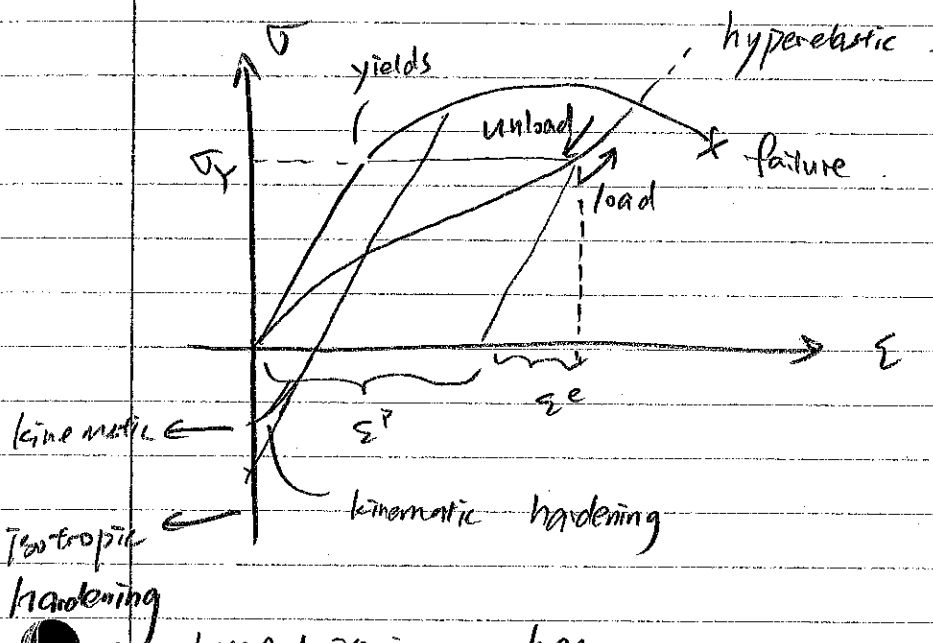 σ
hyperelastic
yields
unload
σY
failure
load
ε
εe
εP
kinematic
kinematic hardening
isotropic
hardening